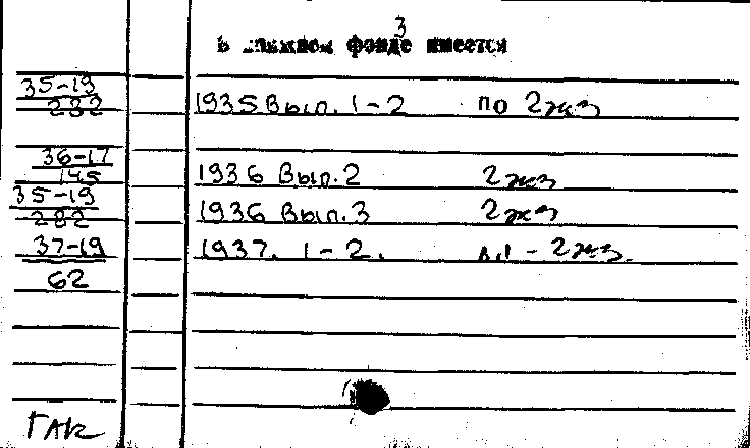 3
В книжном фонде имеется
35-19
282 1935 Вып. 1-2 по 2 экз
36-17
195 1936 Вып. 2 2 экз
35-19
282 1936 Вып. 3 2 экз
37-19 1937. 1-2. - 2 экз.
62
ГАК